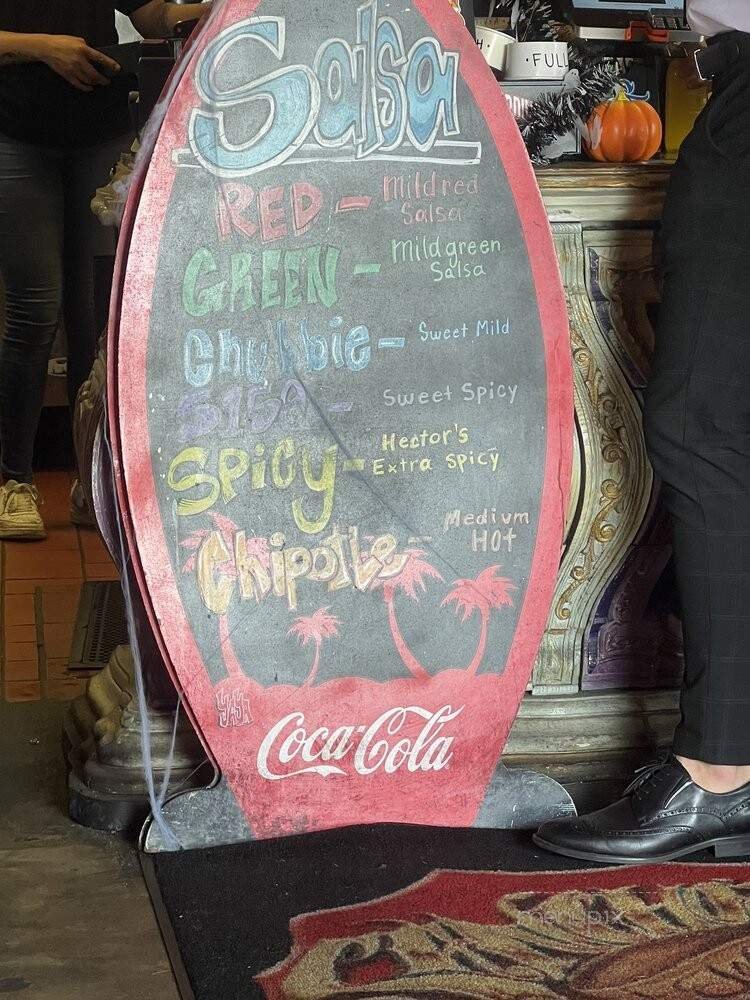 Salsa
RED - Mild red
Salsa
GREEN - Mild green
Salsa
Chubbie - Sweet Mild
S159 - Sweet Spicy
Spicy - Hector's
Extra Spicy
Chipotle - Medium
Hot
Coca-Cola
FULL
menupix